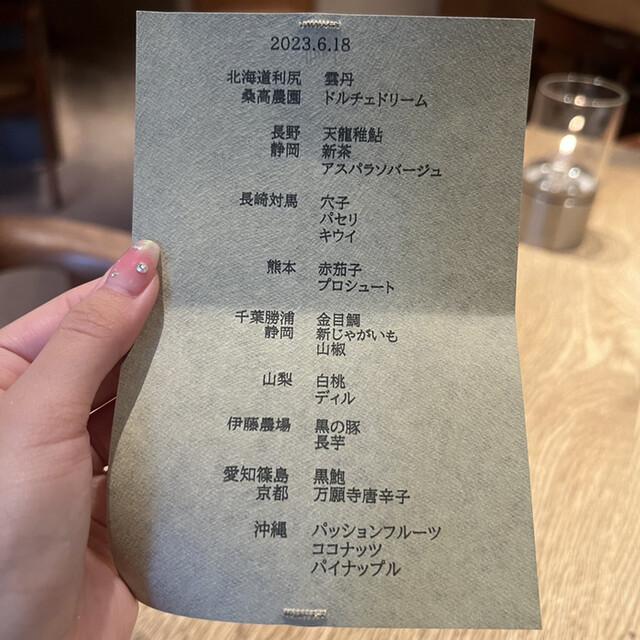 2023.6.18
北海道利尻 雲丹
桑高農園 ドルチェドリーム
長野 天龍稚鮎
静岡 新茶
アスパラソバージュ
長崎対馬 穴子
パセリ
キウイ
熊本 赤茄子
プロシュート
千葉勝浦 金目鯛
静岡 新じゃがいも
山椒
山梨 白桃
ディル
伊藤農場 黒の豚
長芋
愛知篠島 黒鮑
京都 万願寺唐辛子
沖縄 パッションフルーツ
ココナッツ
パイナップル